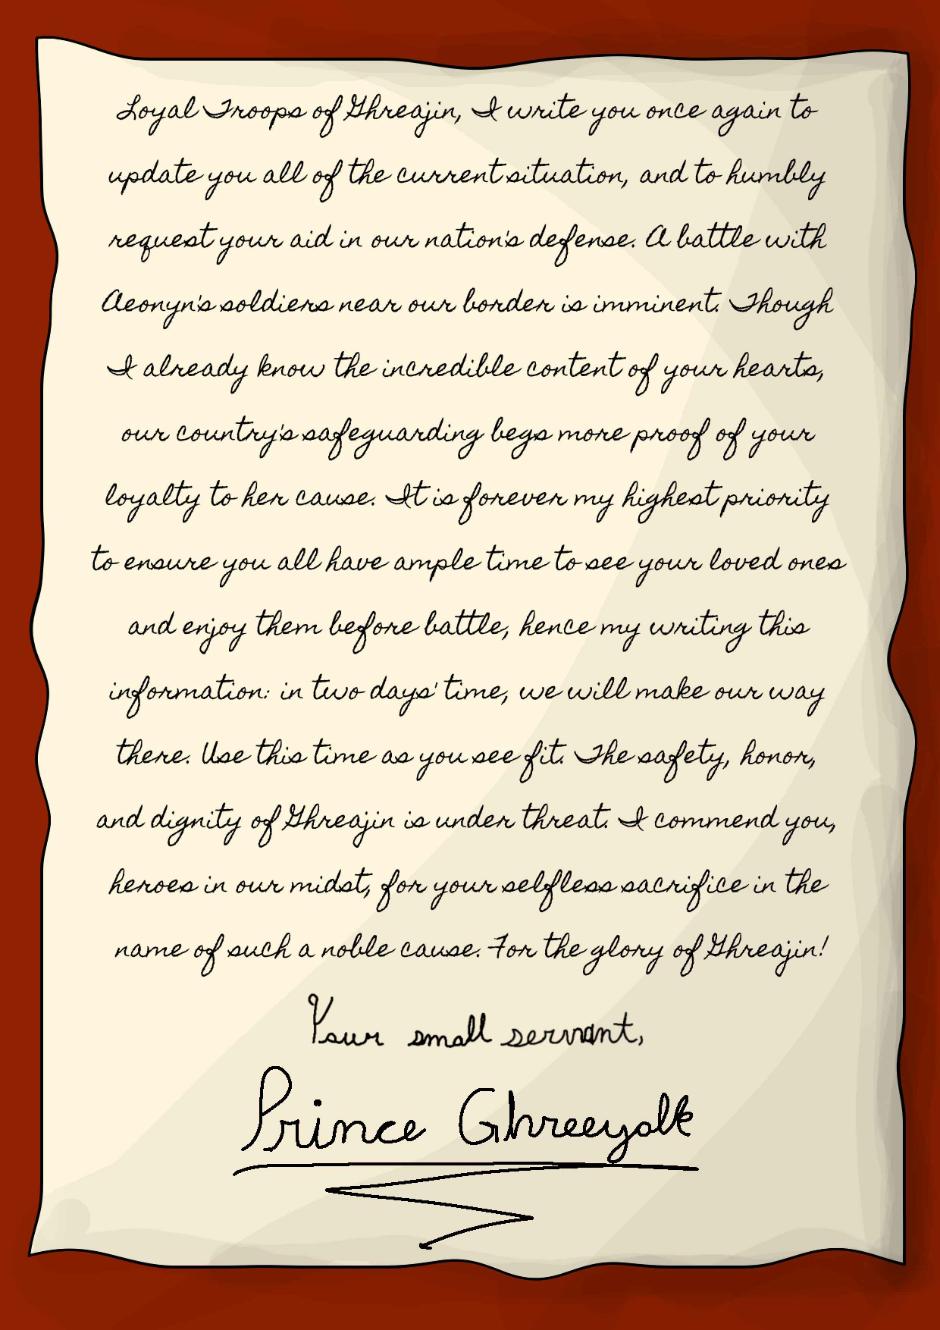 Loyal Troops of Ghreajin, I write you once again to
update you all of the current situation, and to humbly
request your aid in our nation's defense. A battle with
Aeonyn's soldiers near our border is imminent. Though
I already know the incredible content of your hearts,
our country's safeguarding begs more proof of your
loyalty to her cause. It is forever my highest priority
to ensure you all have ample time to see your loved ones
and enjoy them before battle, hence my writing this
information: in two days' time, we will make our way
there. Use this time as you see fit. The safety, honor,
and dignity of Ghreajin is under threat. I commend you,
heroes in our midst, for your selfless sacrifice in the
name of such a noble cause. For the glory of Ghreajin!
Your small servant,
Prince Ghreeyalk